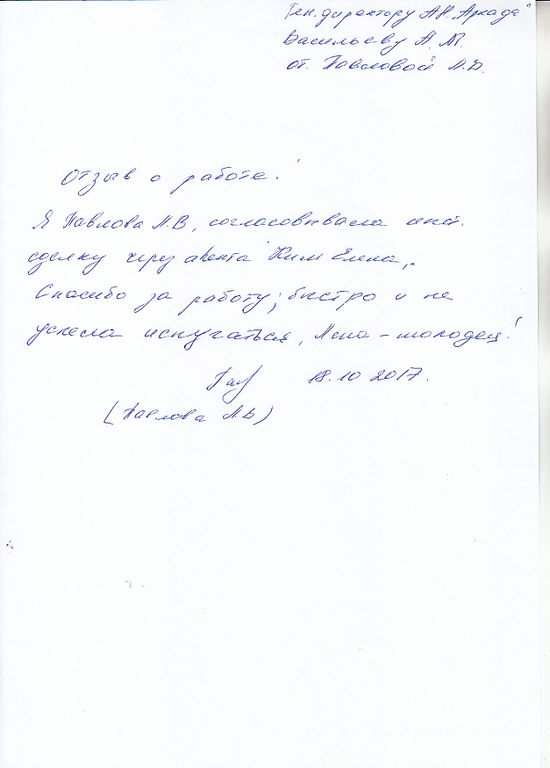 Ген. директору АН "Аркада"
Васильеву А. М.
от Павловой М.В.
Отзыв о работе!
Я Павлова М.В, согласовывала
сделку через агента Ким Елена,
Спасибо за работу; быстро и не
успела испугаться, Лена - молодец!
18.10 2017.
(Павлова М.В)